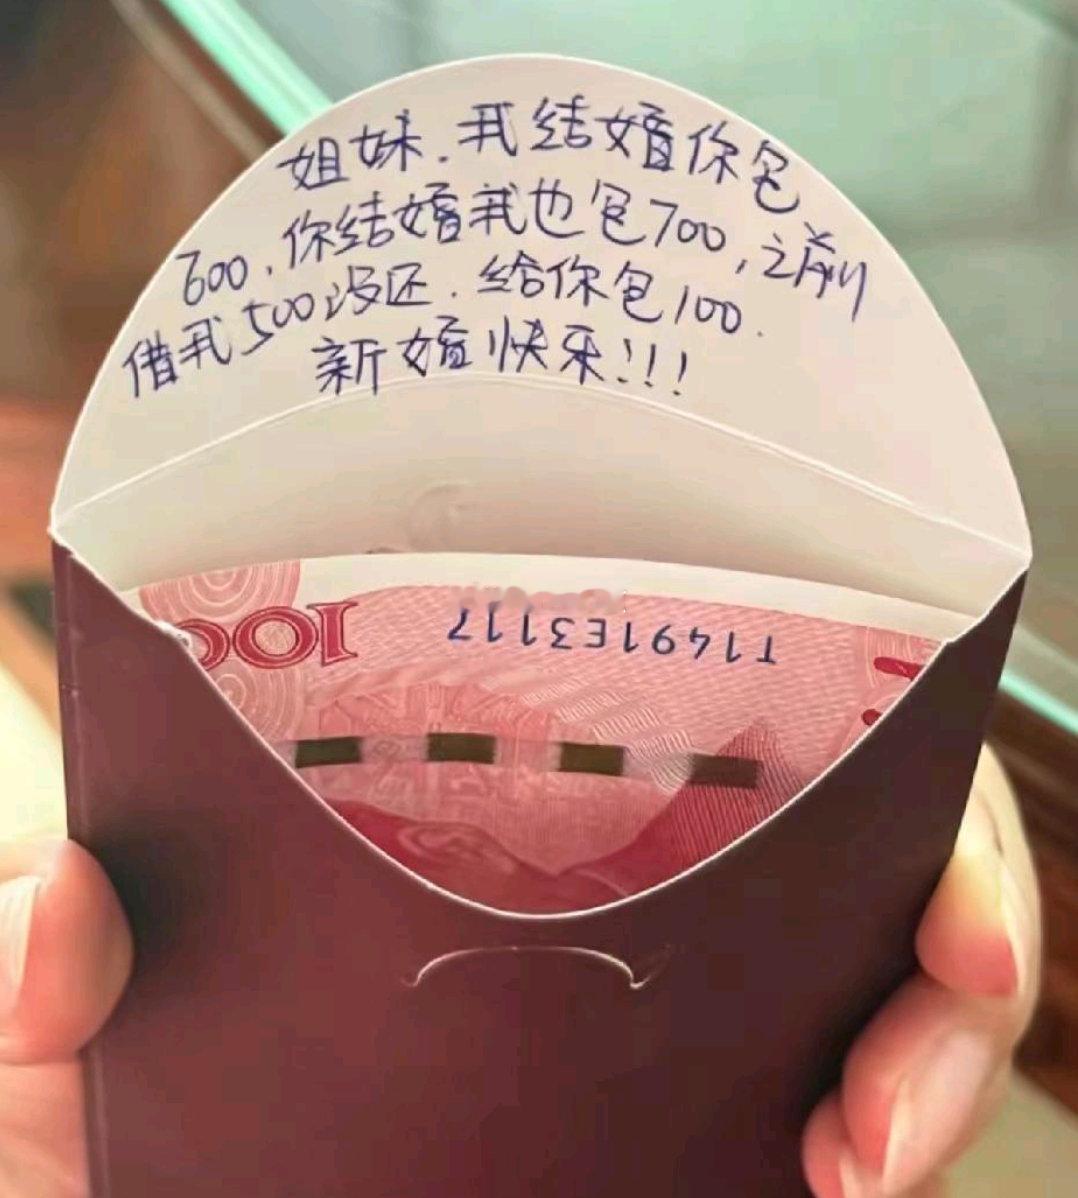 姐妹.我结婚你包
600,你结婚我也包700,之前
借我500没还.给你包100.
新婚快乐!!!
100
T1491E3117